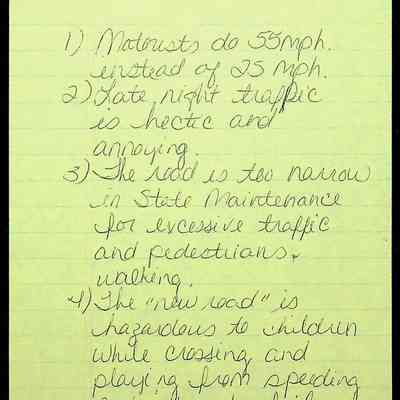 1) Motorists do 55mph.
instead of 25 mph.
2) Late night traffic
is hectic and
annoying.
3) The road is too narrow
in State Maintenance
for excessive traffic
and pedestrians
walking.
4) The "new road" is
hazardous to children
while crossing and
playing from speeding